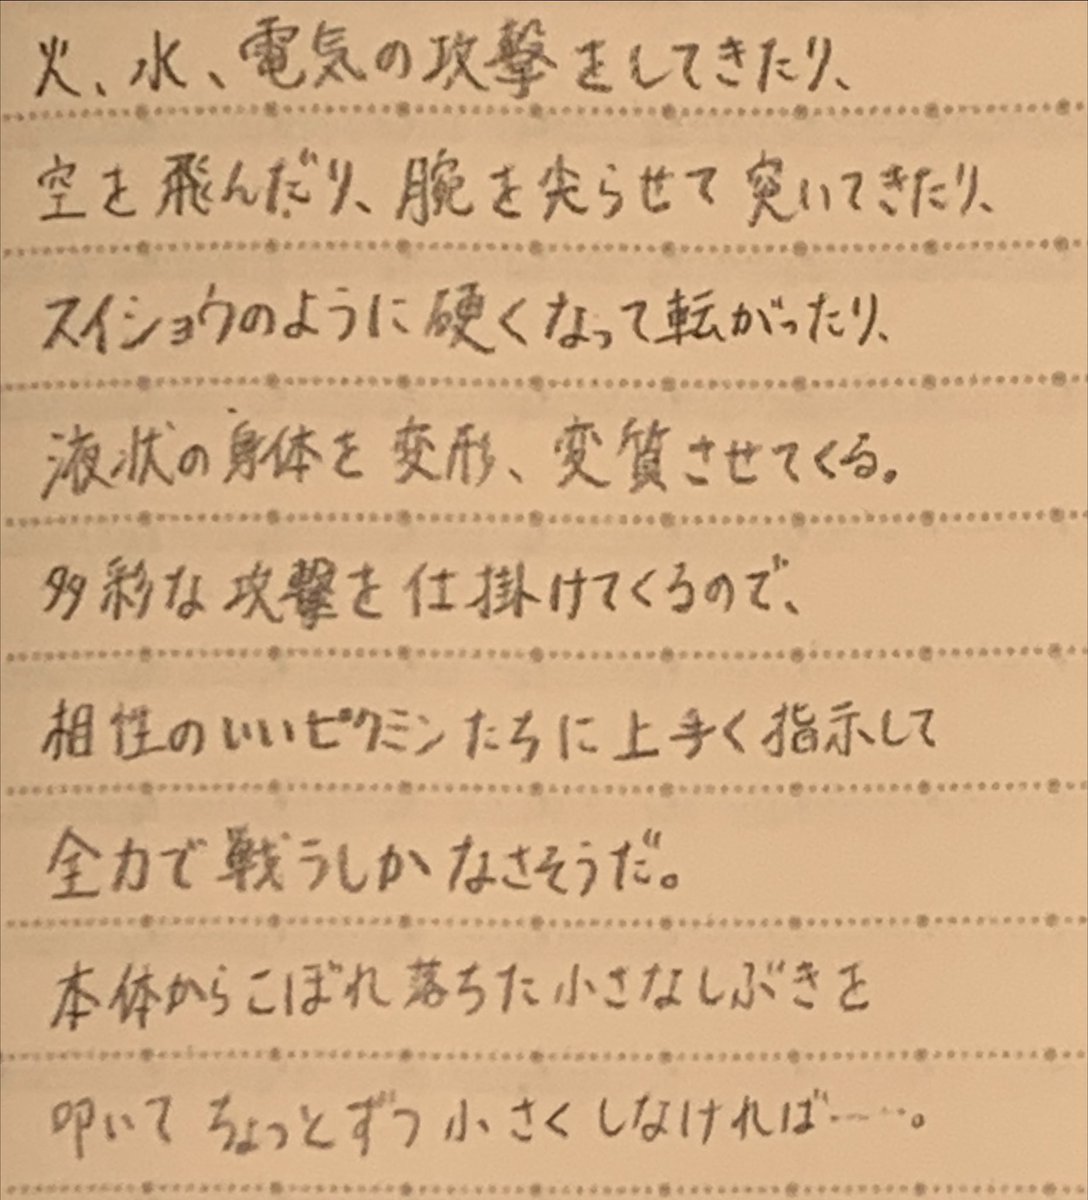 火、水、電気の攻撃をしてきたり、
空を飛んだり、腕を尖らせて突いてきたり、
スイショウのように硬くなって転がったり、
液状の身体を変形、変質させてくる。
多彩な攻撃を仕掛けてくるので、
相性のいいピクミンたちに上手く指示して
全力で戦うしかなさそうだ。
本体からこぼれ落ちた小さなしぶきを
叩いてちょっとずつ小さくしなければ……。